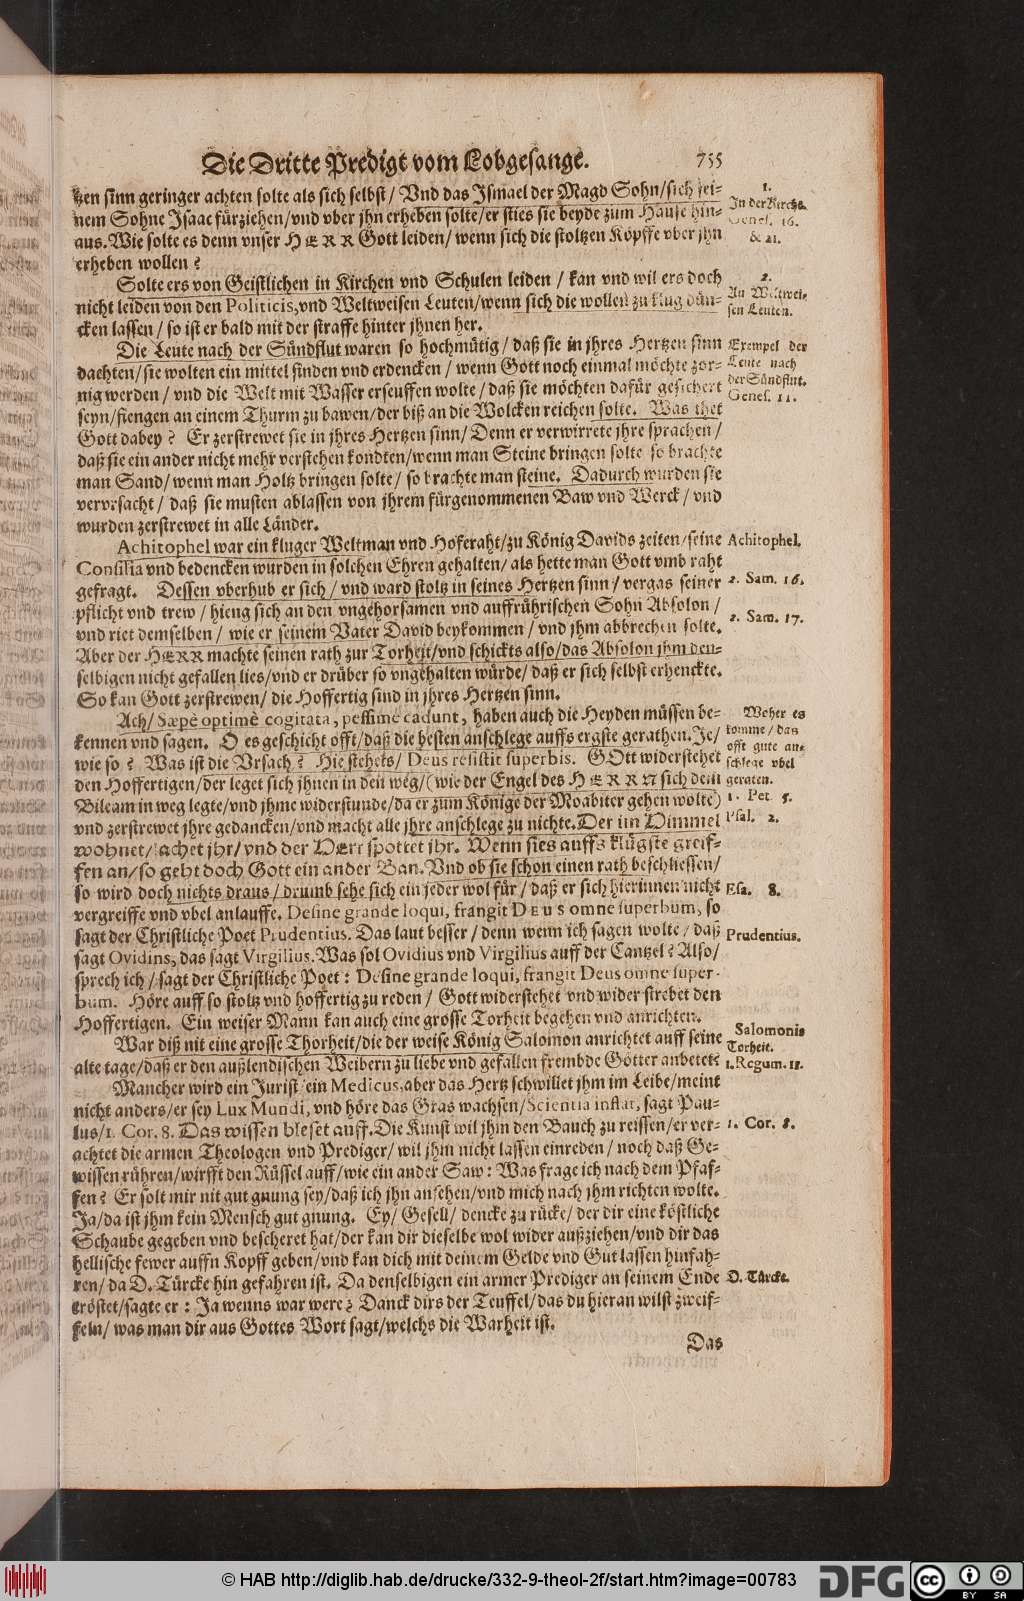 Die Dritte Predigt vom Lobgesange. 755
tzen sinn geringer achten solte als sich selbst / Vnd das Ismael der Magd Sohn / sich sei-
nem Sohne Isaac fürziehen / vnd vber jhn erheben solte / er sties sie beyde zum Hause hin-
aus. Wie solte es denn vnser HERR Gott leiden / wenn sich die stoltzen Köpffe vber jhn
erheben wollen?
1.
In der Kirche.
Genes. 16.
& 21.
Solte ers von Geistlichen in Kirchen vnd Schulen leiden / kan vnd wil ers doch
nicht leiden von den Politicis, vnd Weltweisen Leuten / wenn sich die wollen zu klug dün-
cken lassen / so ist er bald mit der straffe hinter jhnen her.
2.
An Weltwei-
sen Leuten.
Die Leute nach der Sündflut waren so hochmütig / daß sie in jhres Hertzen sinn
dachten / sie wolten ein mittel finden vnd erdencken / wenn Gott noch einmal möchte zor-
nig werden / vnd die Welt mit Wasser erseuffen wolte / daß sie möchten dafür gesichert
seyn / fiengen an einem Thurm zu bawen / der biß an die Wolcken reichen solte. Was thet
Gott dabey? Er zerstrewet sie in jhres Hertzen sinn / Denn er verwirrete jhre sprachen /
daß sie ein ander nicht mehr verstehen kondten / wenn man Steine bringen solte so brachte
man Sand / wenn man Holtz bringen solte / so brachte man steine. Dadurch wurden sie
vervrsacht / daß sie musten ablassen von jhrem fürgenommenen Baw vnd Werck / vnd
wurden zerstrewet in alle Länder.
Exempel der
Leute nach
der Sündflut.
Genes. 11.
Achitophel war ein kluger Weltman vnd Hoferaht / zu König Davids zeiten / seine
Consilia vnd bedencken wurden in solchen Ehren gehalten / als hette man Gott vmb raht
gefragt. Dessen vberhub er sich / vnd ward stoltz in seines Hertzen sinn / vergas seiner
pflicht vnd trew / hieng sich an den vngehorsamen vnd auffrührischen Sohn Absolon /
vnd riet demselben / wie er seinem Vater David beykommen / vnd jhm abbrechen solte.
Aber der HERR machte seinen rath zur Torheit / vnd schickts also / das Absolon jhm den-
selbigen nicht gefallen lies / vnd er drüber so vngehalten würde / daß er sich selbst erhenckte.
So kan Gott zerstrewen / die Hoffertig sind in jhres Hertzen sinn.
Achitophel.
2. Sam. 16.
2. Sam. 17.
Ach / Sæpè optimè cogitata, pessimè cadunt, haben auch die Heyden müssen be-
kennen vnd sagen. O es geschicht offt / daß die besten anschlege auffs ergste gerathen. Je /
wie so? Was ist die Vrsach? Hie stehets / Deus resistit superbis. GOtt widerstehet
den Hoffertigen / der leget sich jhnen in den weg / (wie der Engel des HERRN sich dem
Bileam in weg legte / vnd jhme widerstunde / da er zum Könige der Moabiter gehen wolte)
vnd zerstrewet jhre gedancken / vnd macht alle jhre anschlege zu nichte. Der im Himmel
wohnet / lachet jhr / vnd der HErr spottet jhr. Wenn sies auffs klügste greif-
fen an / so geht doch Gott ein ander Ban. Vnd ob sie schon einen rath beschliessen /
so wird doch nichts draus / drumb sehe sich ein jeder wol für / daß er sich hierinnen nicht
vergreiffe vnd vbel anlauffe. Desine grande loqui, frangit DEUS omne superbum, so
sagt der Christliche Poet Prudentius. Das laut besser / denn wenn ich sagen wolte / daß
sagt Ovidius, das sagt Virgilius. Was sol Ovidius vnd Virgilius auff der Cantzel? Also /
sprech ich / sagt der Christliche Poet: Desine grande loqui, frangit Deus omne super-
bum. Höre auff so stoltz vnd hoffertig zu reden / Gott widerstehet vnd wider strebet den
Hoffertigen. Ein weiser Mann kan auch eine grosse Torheit begehen vnd anrichten.
Woher es
komme / das
offt gute an-
schlege vbel
geraten.
1. Pet. 5.
Psal. 2.
Esa. 8.
Prudentius.
War diß nit eine grosse Thorheit / die der weise König Salomon anrichtet auff seine
alte tage / daß er den außlendischen Weibern zu liebe vnd gefallen frembde Götter anbetet?
Salomonis
Torheit.
1. Regum. 11.
Mancher wird ein Jurist / ein Medicus, aber das Hertz schwillet jhm im Leibe / meint
nicht anders / er sey Lux Mundi, vnd höre das Gras wachsen / Scientia inflat, sagt Pau-
lus / 1. Cor. 8. Das wissen bleset auff. Die Kunst wil jhm den Bauch zu reissen / er ver-
achtet die armen Theologen vnd Prediger / wil jhm nicht lassen einreden / noch daß Ge-
wissen rühren / wirfft den Rüssel auff / wie ein ander Saw: Was frage ich nach dem Pfaf-
fen? Er solt mir nit gut gnung sey / daß ich jhn ansehen / vnd mich nach jhm richten wolte.
Ja / da ist jhm kein Mensch gut gnung. Ey / Gesell / dencke zu rücke / der dir eine köstliche
Schaube gegeben vnd bescheret hat / der kan dir dieselbe wol wider außziehen / vnd dir das
hellische fewer auffn Kopff geben / vnd kan dich mit deinem Gelde vnd Gut lassen hinfah-
ren / da D. Türcke hin gefahren ist. Da denselbigen ein armer Prediger an seinem Ende
tröstet / sagte er: Ja wenns war were? Danck dirs der Teuffel / das du hieran wilst zweif-
feln / was man dir aus Gottes Wort sagt / welchs die Warheit ist.
1. Cor. 8.
D. Türcke.
Das
© HAB http://diglib.hab.de/drucke/332-9-theol-2f/start.htm?image=00783
DFG
cc BY SA